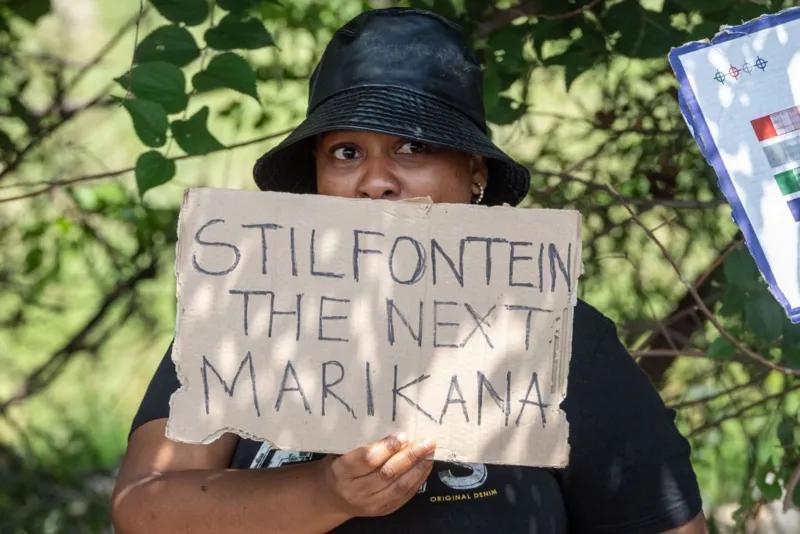 STILFONTEIN
THE NEXT
MARIKANA
ORIGINAL DENIM